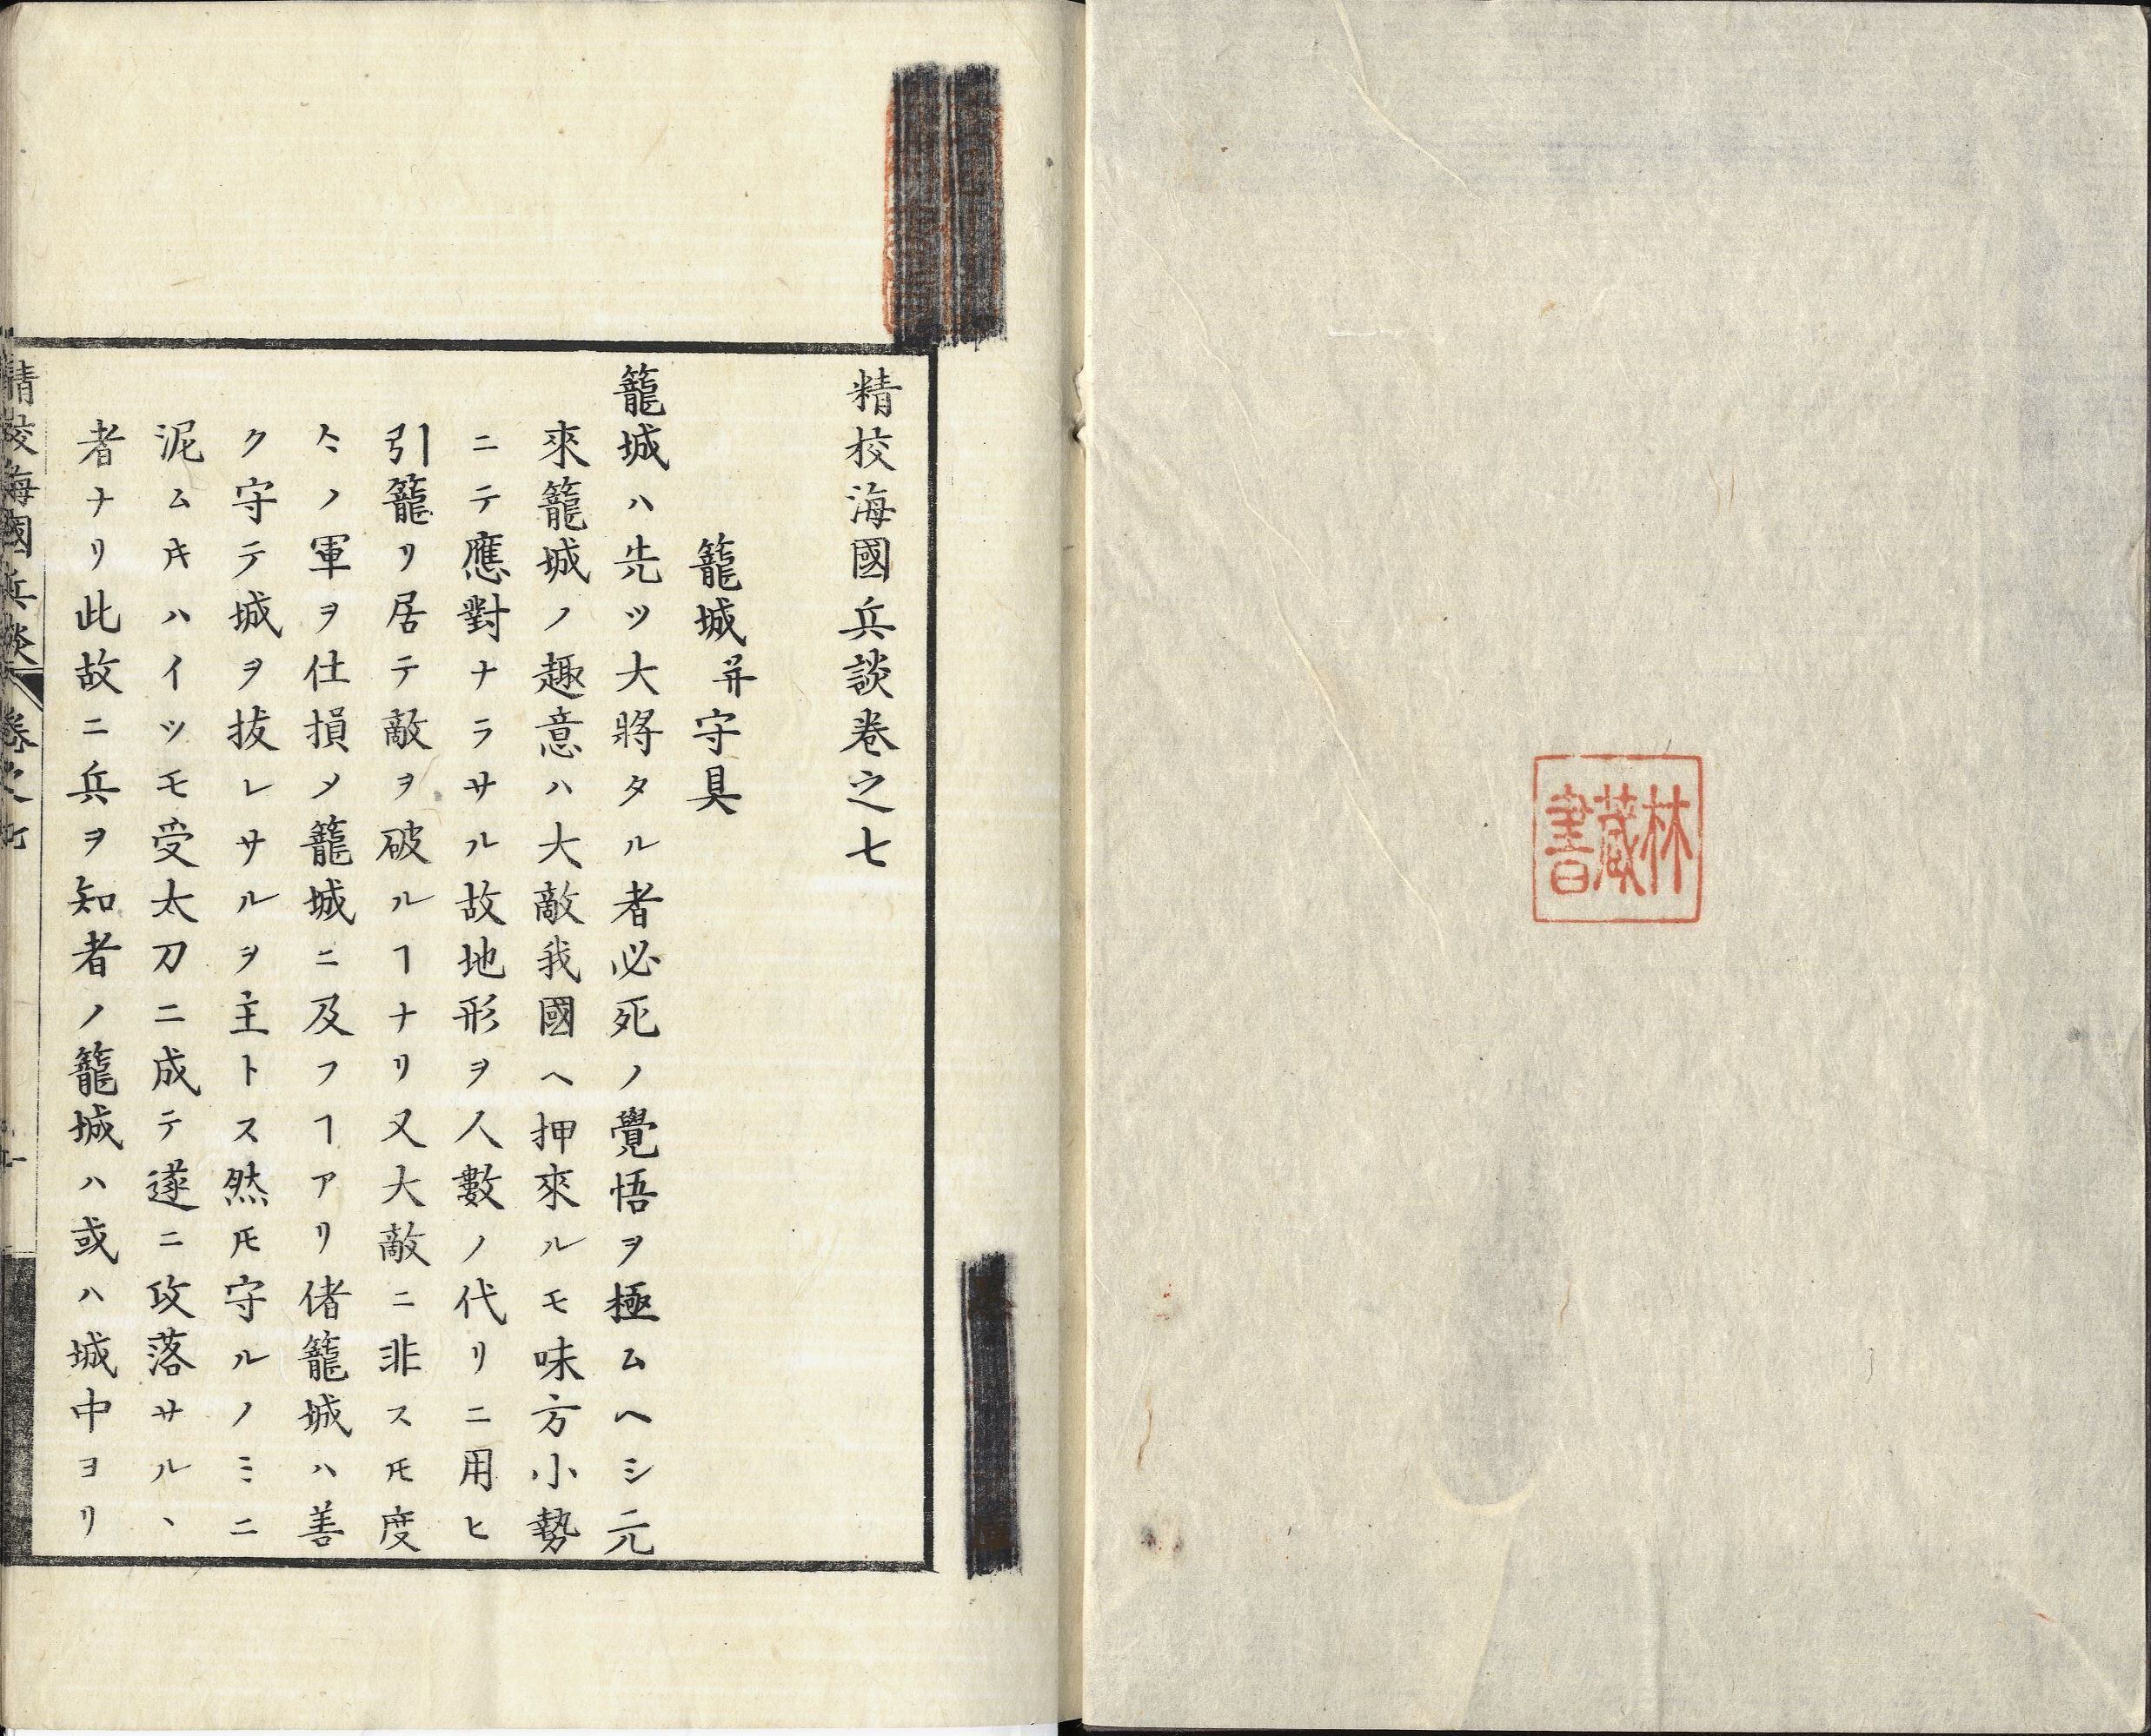 林
藏
書
精校海國兵談卷之七
籠城并守具
籠城ハ先ツ大將タル者必死ノ覺悟ヲ極ムヘシ元
來籠城ノ趣意ハ大敵我國ヘ押來ルモ味方小勢
ニテ應對ナラサル故地形ヲ人數ノ代リニ用ヒ
引籠リ居テ敵ヲ破ルヿナリ又大敵ニ非スㇳモ度
〻ノ軍ヲ仕損メ籠城ニ及フヿアリ偖籠城ハ善
ク守テ城ヲ拔レサルヲ主トス然𪜈守ルノミニ
泥ムキハイツモ受太刀ニ成テ遂ニ攻落サルヽ
者ナリ此故ニ兵ヲ知者ノ籠城ハ或ハ城中ヨリ
精校海國兵談 卷之